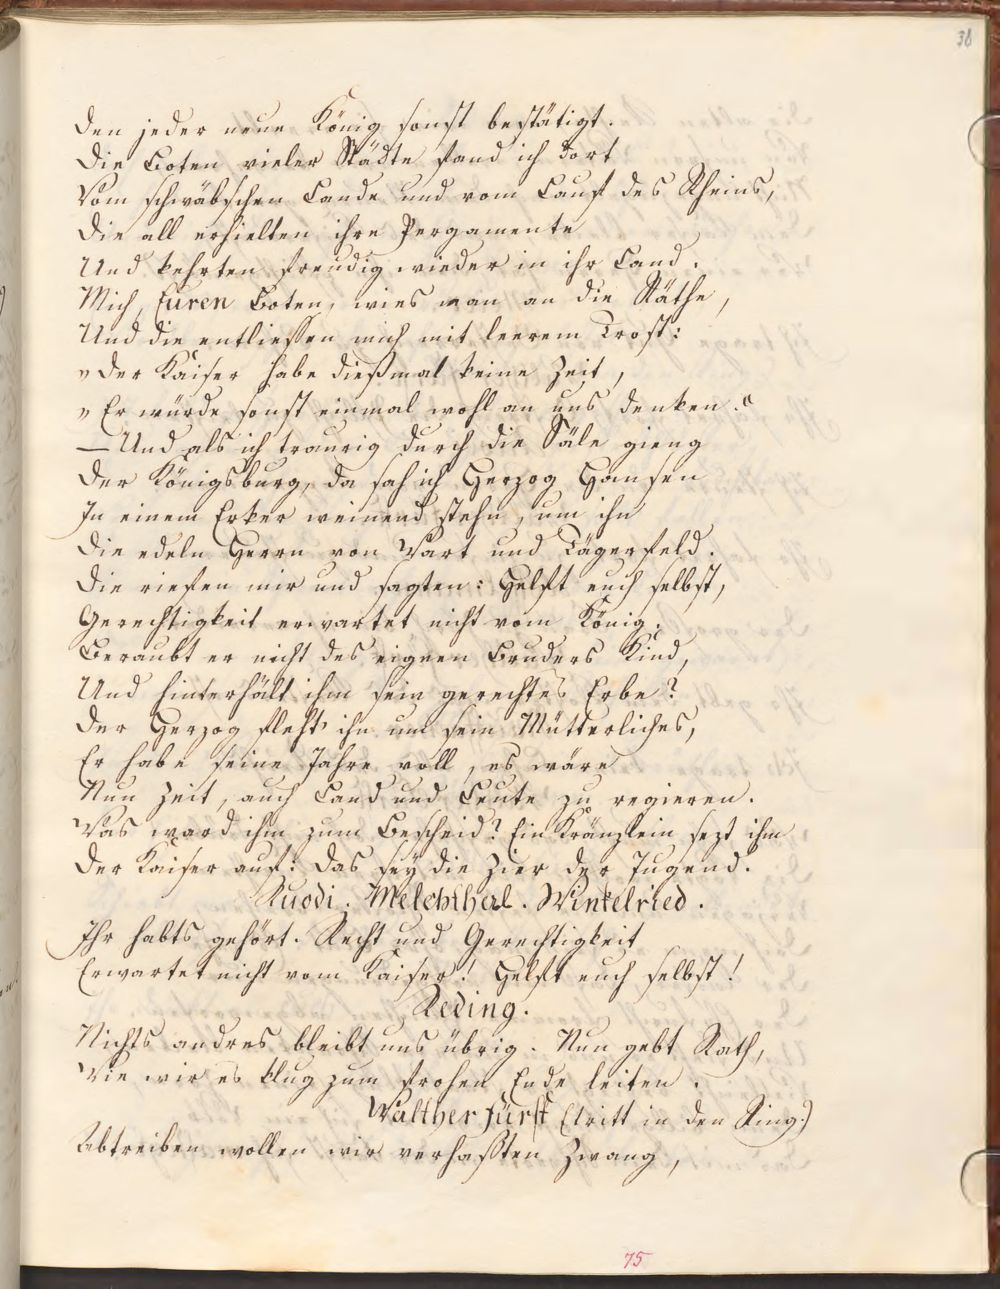 38
Den jeder neue König sonst bestätigt.
Die Boten vieler Städte fand ich dort
Vom schwäbschen Lande und vom Lauf des Rheins,
Die all erhielten ihre Pergamente
Und kehrten freudig wieder in ihr Land.
Mich, Euren Boten, wies man an die Räthe,
Und die entliessen mich mit leerem Trost:
„Der Kaiser habe dießmal keine Zeit,
„Er würde sonst einmal wohl an uns denken.“
— Und als ich traurig durch die Säle gieng
Der Königsburg, da sah ich Herzog Hansen
In einem Erker weinend stehn, um ihn
Die edeln Herrn von Wart und Tägerfeld.
Die riefen mir und sagten: Helft euch selbst,
Gerechtigkeit erwartet nicht vom König.
Beraubt er nicht des eignen Bruders Kind,
Und hinterhält ihm sein gerechtes Erbe?
Der Herzog fleht' ihn um sein Mütterliches,
Er habe seine Jahre voll, es wäre
Nun Zeit, auch Land und Leute zu regieren.
Was ward ihm zum Bescheid? Ein Kränzlein sezt ihm
Der Kaiser auf: Das sey die Zier der Jugend.
Ruodi. Melchthal. Winkelried.
Ihr habts gehört. Recht und Gerechtigkeit
Erwartet nicht vom Kaiser! Helft euch selbst!
Reding.
Nichts andres bleibt uns übrig. Nun gebt Rath,
Wie wir es klug zum frohen Ende leiten.
Walther Fürst (tritt in den Ring.)
Abtreiben wollen wir verhaßten Zwang,
75